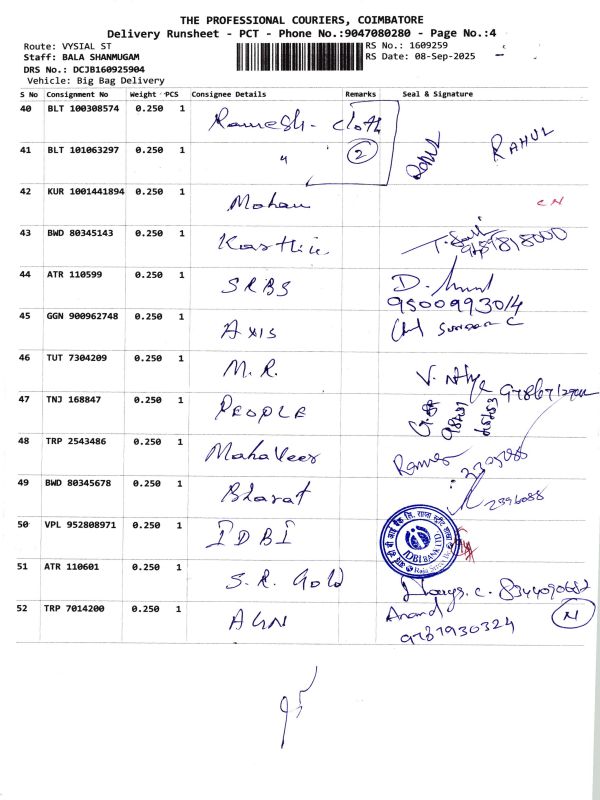 THE PROFESSIONAL COURIERS, COIMBATORE
Delivery Runsheet - PCT - Phone No.:9047080280 - Page No.:4
Route: VYSIAL ST
RS No.: 1609259
Staff: BALA SHANMUGAM
RS Date: 08-Sep-2025
DRS No.: DCJB160925904
Vehicle: Big Bag Delivery
S No Consignment No Weight PCS Consignee Details Remarks Seal & Signature
40 BLT 100308574 0.250 1 Ramesh - cloth
41 BLT 101063297 0.250 1 " 2 RAHUL
42 KUR 1001441894 0.250 1 Mohan CN
43 BWD 80345143 0.250 1 Karthik
44 ATR 110599 0.250 1 SRBS D.
9500993014
45 GGN 900962748 0.250 1 AXIS
46 TUT 7304209 0.250 1 M.R. V.
47 TNJ 168847 0.250 1 PEOPLE
48 TRP 2543486 0.250 1 Mahaveer
49 BWD 80345678 0.250 1 Bharat 2396088
50 VPL 952808971 0.250 1 IDBI IDBI BANK LTD
51 ATR 110601 0.250 1 S.R. Gold C. 8344090682
52 TRP 7014200 0.250 1 AGN Anand N
9787930324